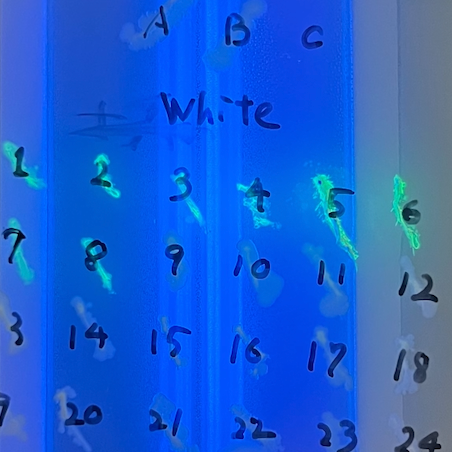 A B C
White
1 2 3 4 5 6
7 8 9 10 11 12
3 14 15 16 17 18
9 20 21 22 23 24